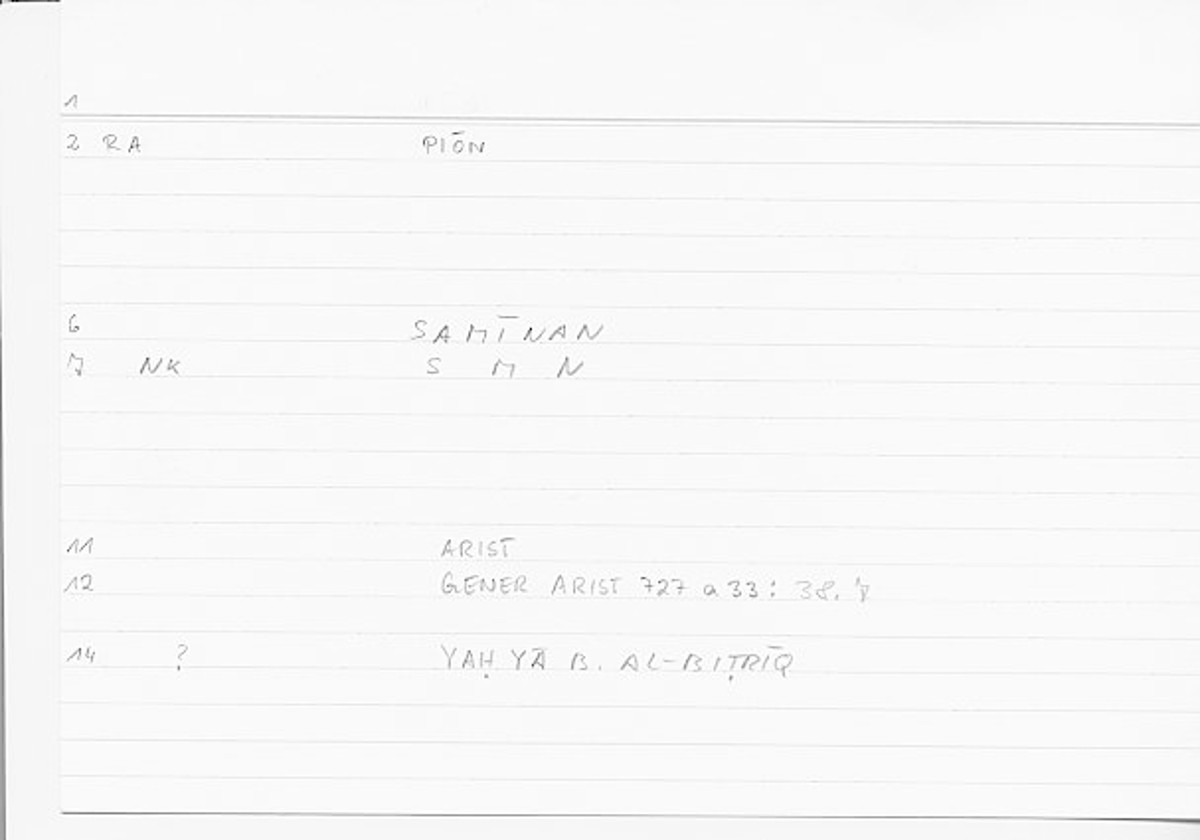 1
2 RA PIŌN
6 SAMĪNAN
7 NK S M N
11 ARIST
12 GENER ARIST 727 a 33 : 38.
14 ? YAḤYĀ B. AL-BIṬRĪQ